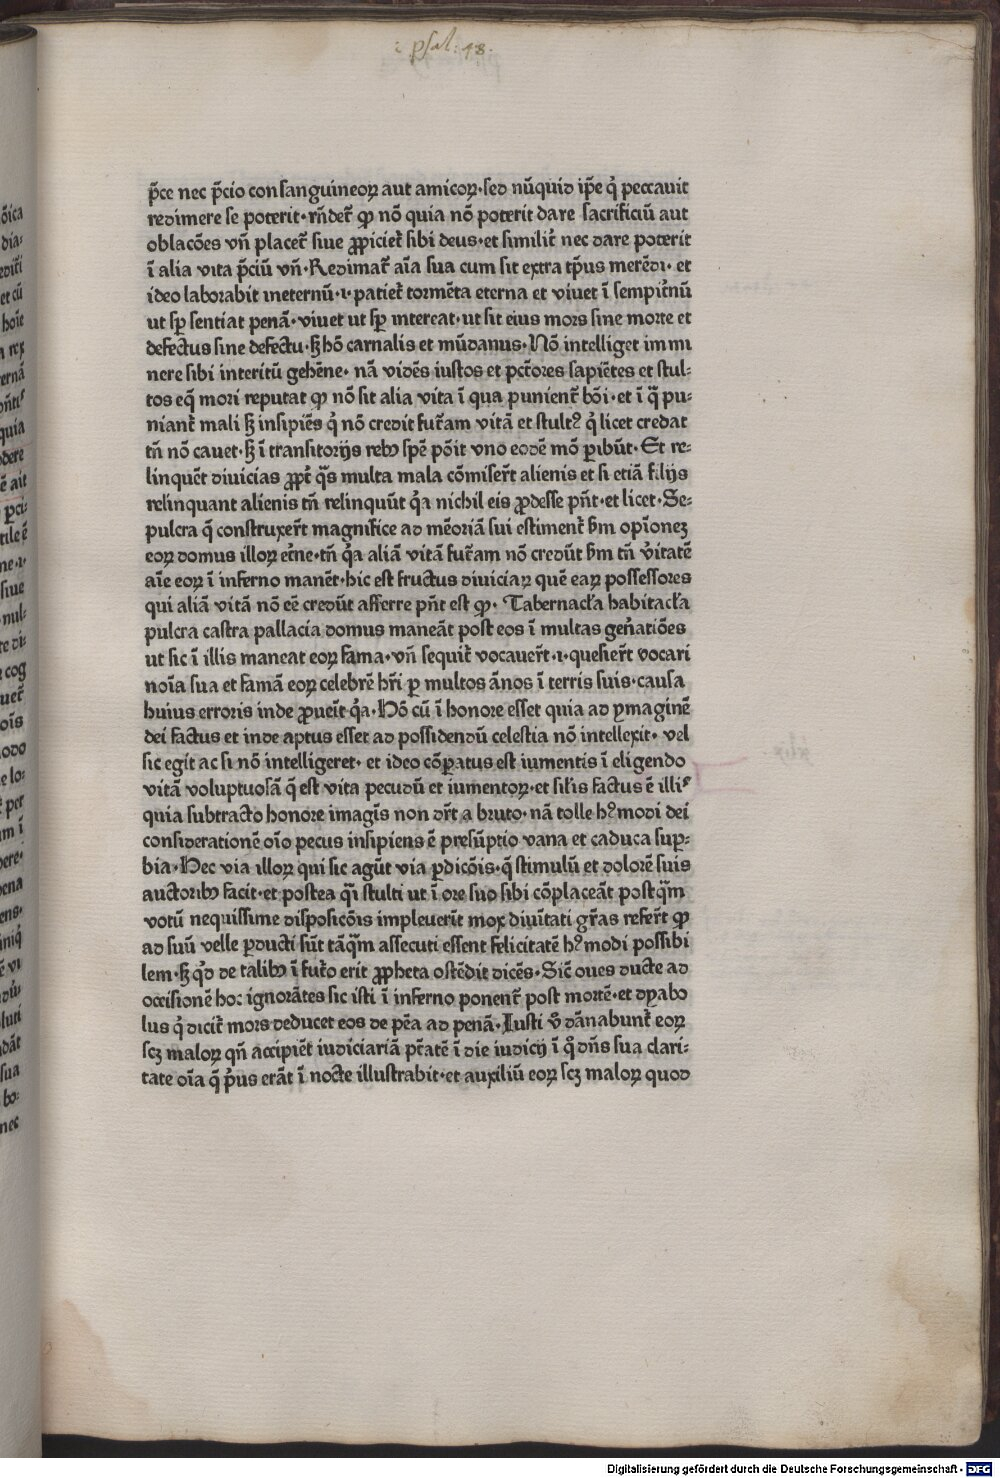 i psal: 48.
p̄ce nec p̄cio consanguineoꝝ aut amicoꝝ·sed nūquid ip̄e qͥ peccauit
redimere se poterit·rn̄det᷑ ꝙ nō quia nō poterit dare sacrificiū aut
oblacōes vn̄ placet᷑ siue ꝓpiciet᷑ sibi deus·et similit᷑ nec dare poterit
ī alia vita p̄ciū vn̄·Redimat᷑ aīa sua cum sit extra tp̄us merēdi·et
ideo laborabit ineternū·i·patiet᷑ tormēta eterna et viuet ī sempit᷑nū
ut sꝑ sentiat penā·viuet ut sꝑ intereat·ut sit eius mors sine morte et
defectus sine defectu·ꝫ hō carnalis et mūdanus·Nō intelliget immi
nere sibi interitū gehēne·nā vidēs iustos et pct̄ores sapiētes et stul-
tos eqͥ mori reputat ꝙ nō sit alia vita ī qua punient᷑ bōi·et ī q̄ pu-
niant᷑ mali ꝫ insipiēs qͥ nō credit fut᷑am vitā et stultꝰ qͥ licet credat
tn̄ nō cauet·ꝫ ī transitorijs rebꝰ spē pōit vno eodē mō ꝑibūt·Et re-
linquēt diuicias ꝓpt᷑ q̄s multa mala cōmiser̄t alienis et si etiā filijs
relinquant alienis tn̄ relinquūt qͥa nichil eis ꝓdesse pn̄t·et licet·Se-
pulcra q̄ construxer̄t magnifice ad mēoriā sui estiment᷑ ẜm opīonez
eoꝝ domus illoꝝ et᷑ne·tn̄ qͥa aliā vitā fut᷑am nō credūt ẜm tn̄ v̄itatē
aīe eoꝝ ī inferno manēt·hic est fructus diuiciaꝝ quē eaꝝ possessores
qui aliā vitā nō eē credūt afferre pn̄t est ꝙ·Tabernacl̄a habitacl̄a
pulcra castra pallacia domus maneāt post eos ī multas gen̄atiōes
ut sic ī illis maneat eoꝝ fama·vn̄ sequit᷑ vocauer̄t·i·quesier̄t vocari
noīa sua et famā eoꝝ celebrē hr̄i ꝑ multos ānos ī terris suis·causa
huius erroris inde ꝓueīt qͥa·Hō cū ī honore esset quia ad ymaginē
dei factus et inde aptus esset ad possidendū celestia nō intellexit·vel
sic egit ac si nō intelligeret·et ideo cōꝑatus est iumentis ī eligendo
vitā voluptuosā q̄ est vita pecudū et iumentoꝝ·et sil̄is factus ē illiˢ
quia subtracto honore imagīs non dr̄t a bruto·nā tolle hꝰmodi dei
considerationē oīo pecus insipiens ē presūptio vana et caduca suꝑ-
bia·Hec via illoꝝ qui sic agūt via ꝑdicōis·q̄ stimulū et dolorē suis
auctoribꝰ facit·et postea qͣi stulti ut ī ore suo sibi cōplaceāt postqͣm
votū nequissime disposicōis impleuerīt mox diuītati gr̄as refer̄t ꝙ
ad suū velle ꝑducti sūt tāqͣm assecuti essent felicitatē hꝰmodi possibi
lem·ꝫ qͥd de talibꝰ ī fut᷑o erit ꝓpheta ostēdit dicēs·Sic̄ oues ducte ad
occisionē hoc ignorātes sic isti ī inferno ponent᷑ post mortē·et dyabo
lus qͥ dicit᷑ mors deducet eos de pēa ad penā·Iusti v̄ dānabunt᷑ eoꝝ
scꝫ maloꝝ qn̄ accipiēt iudiciariā pt̄atē ī die iudicij ī qͦ dn̄s sua clari-
tate oīa q̄ pͥus erāt ī nocte illustrabit·et auxiliū eoꝝ scꝫ maloꝝ quod
Digitalisierung gefördert durch die Deutsche Forschungsgemeinschaft - DFG